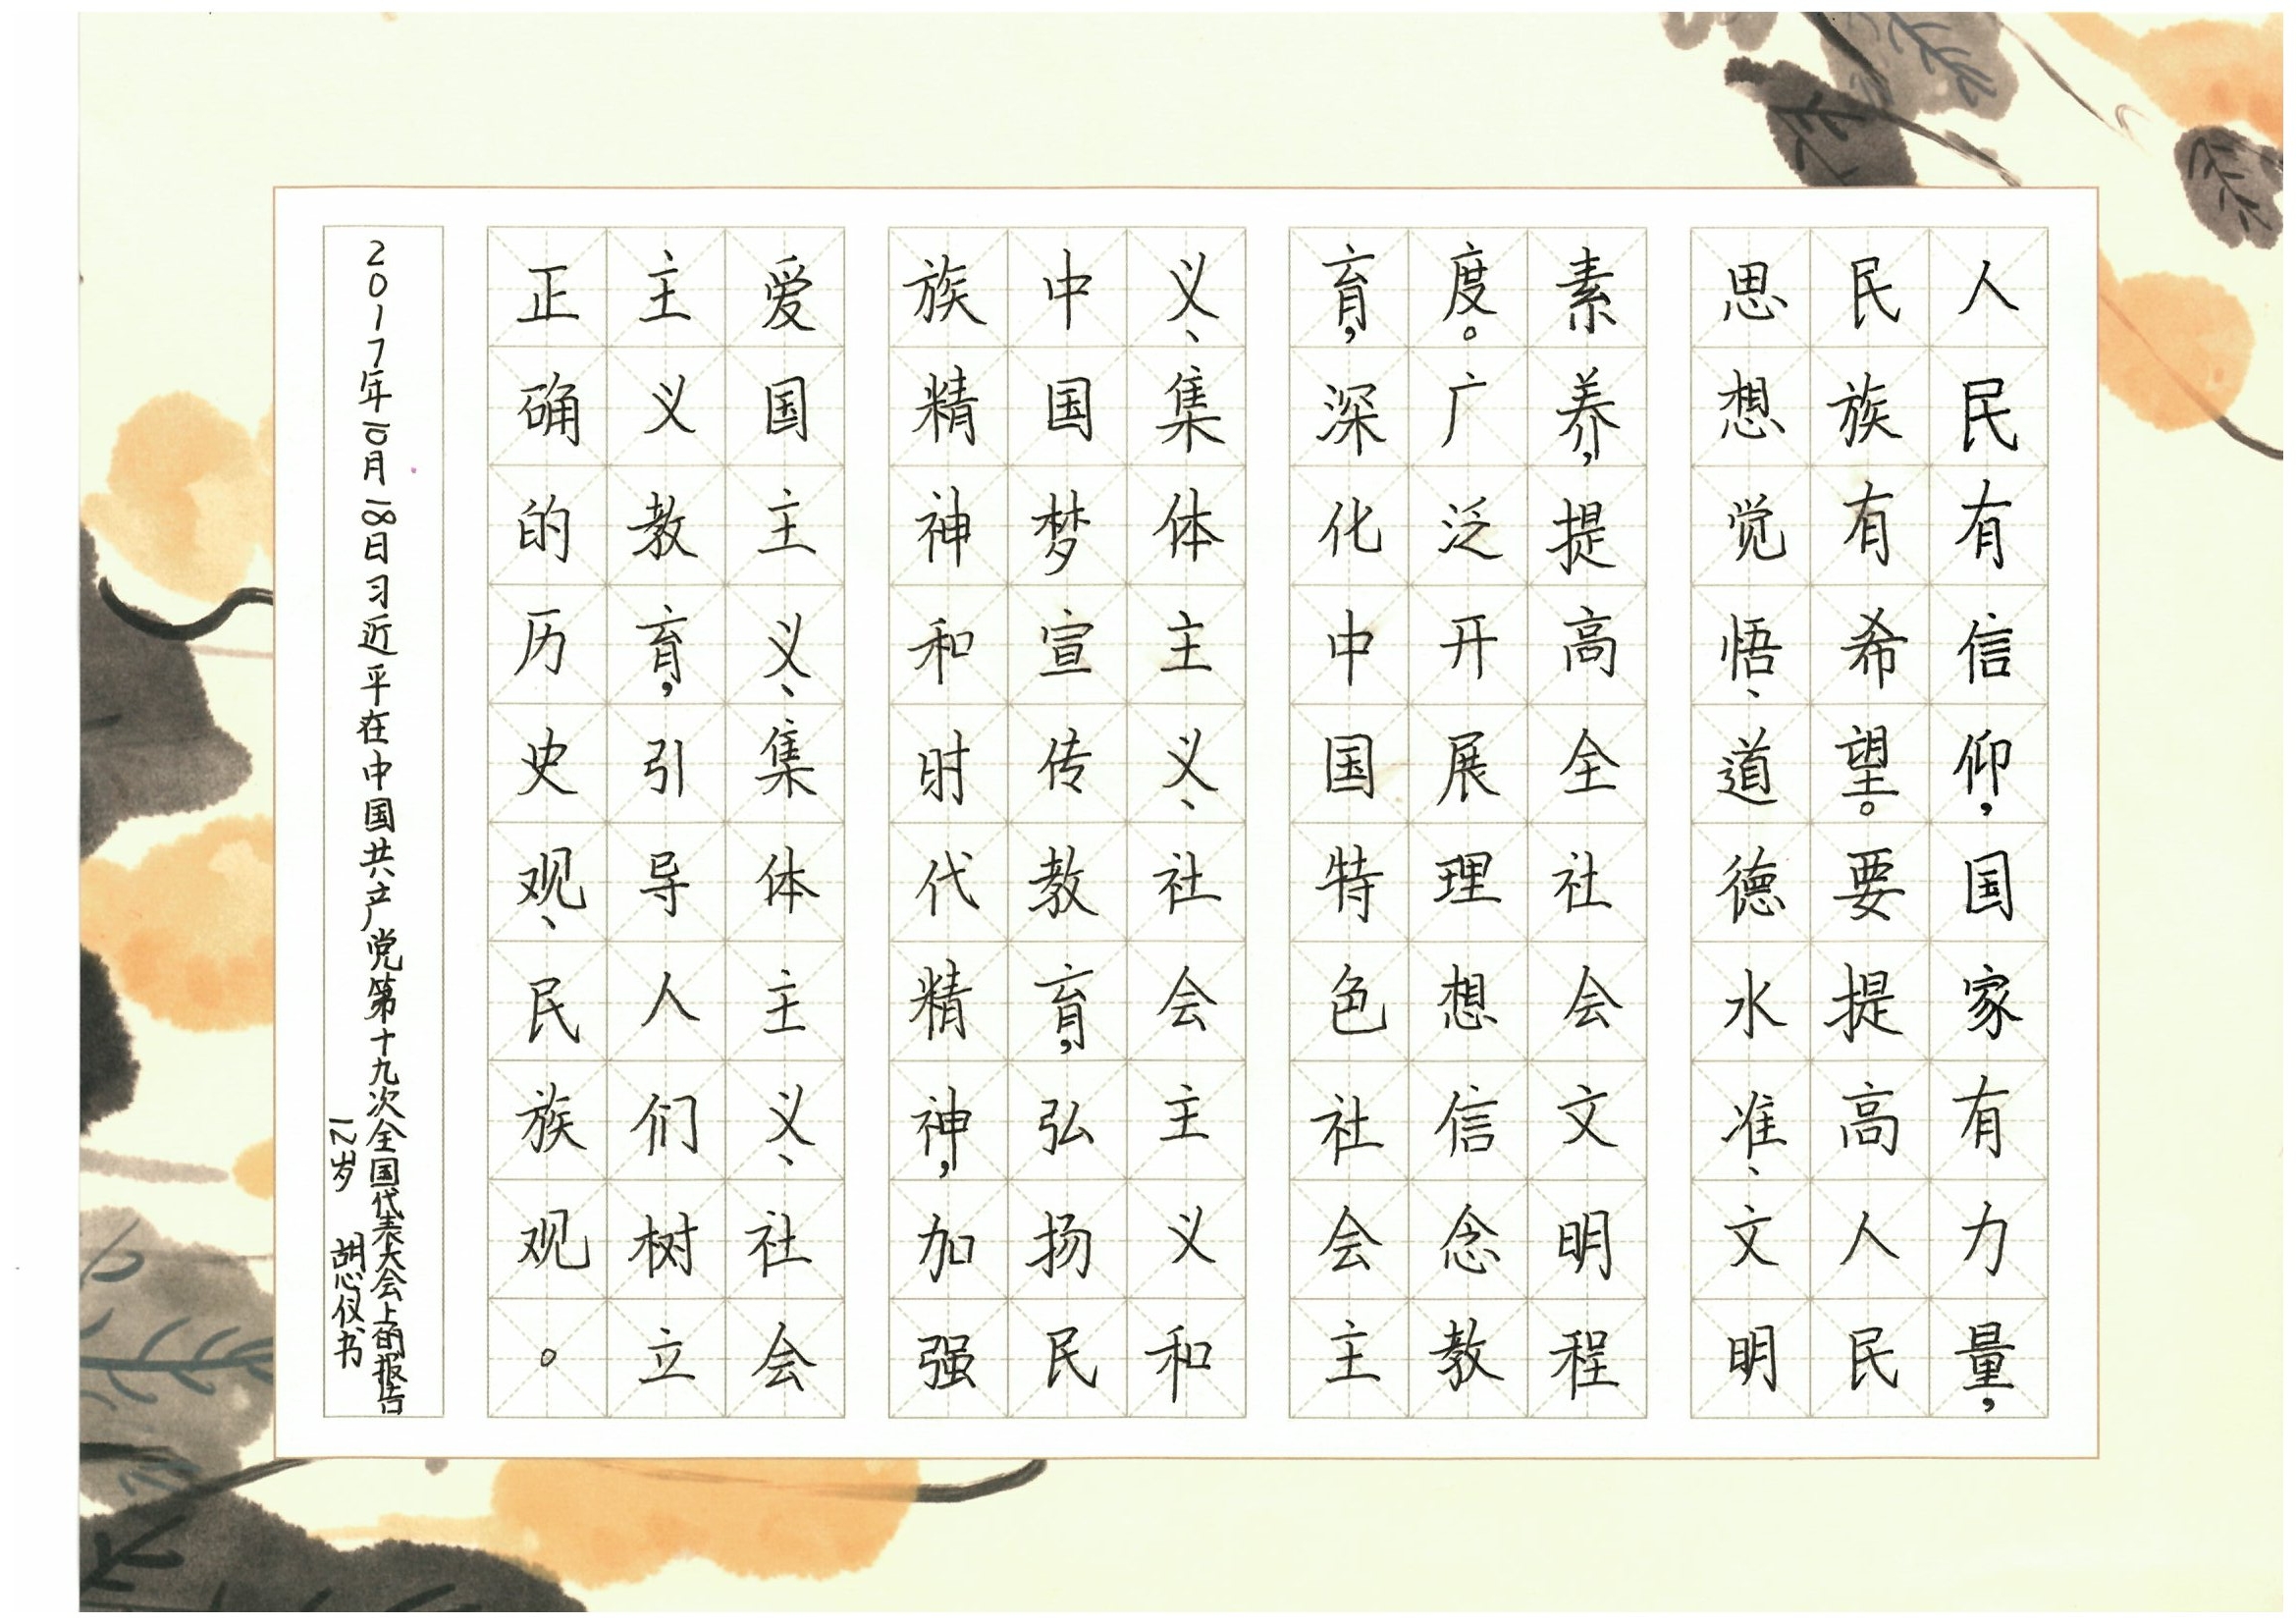 人民有信仰，国家有力量，
民族有希望。要提高人民
思想觉悟、道德水准、文明
素养，提高全社会文明程
度。广泛开展理想信念教
育，深化中国特色社会主
义、集体主义、社会主义和
中国梦宣传教育，弘扬民
族精神和时代精神，加强
爱国主义、集体主义、社会
主义教育，引导人们树立
正确的历史观、民族观
。
2017年10月18日习近平在中国共产党第十九次全国代表大会上的报告
12岁 胡心仪书